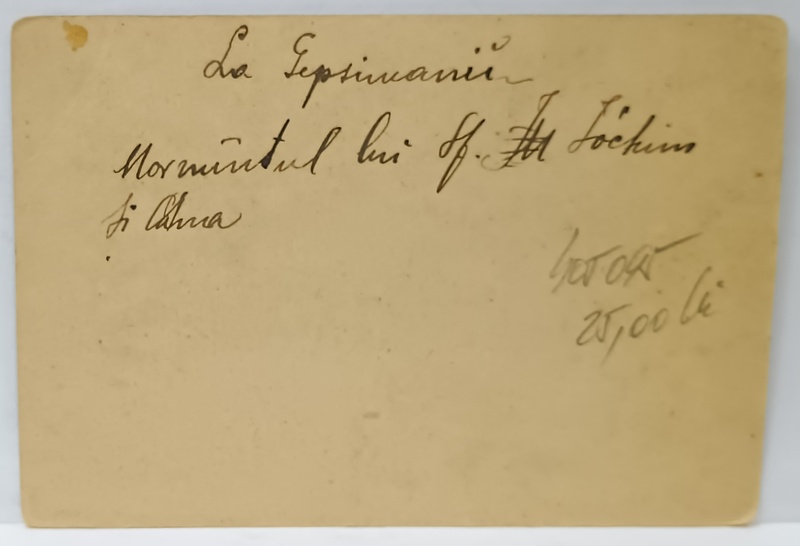 La Gepsimanii
Mormîntul lui Sf. Iòchim
Si Ana
25,00 lei